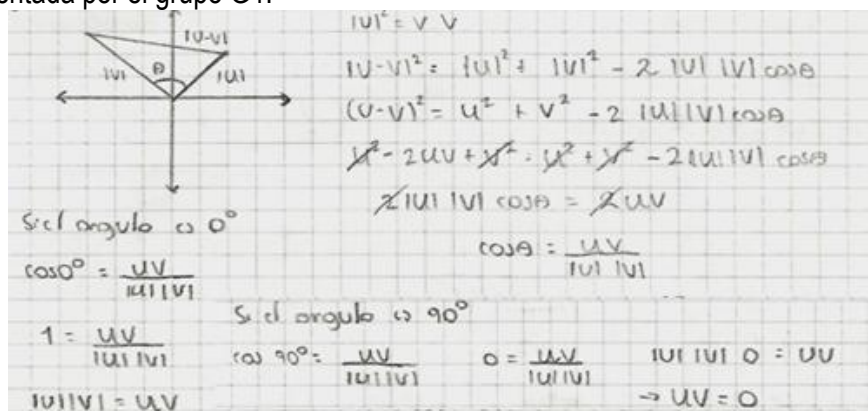 entada por el grupo G1.
|U-V|
|V| θ |U|
|U|² = V V
|U-V|² = |U|² + |V|² - 2 |U| |V| cosθ
(U-V)² = U² + V² - 2 |U||V| cosθ
U² - 2UV + V² = U² + V² - 2|U||V| cosθ
2|U| |V| cosθ = 2UV
cosθ = UV / |U| |V|
Si el angulo es 0°
cos0° = UV / |U||V|
1 = UV / |U||V|
|U||V| = UV
Si el angulo es 90°
cos 90° = UV / |U||V|
0 = UV / |U||V|
|U| |V| 0 = UV
→ UV = 0